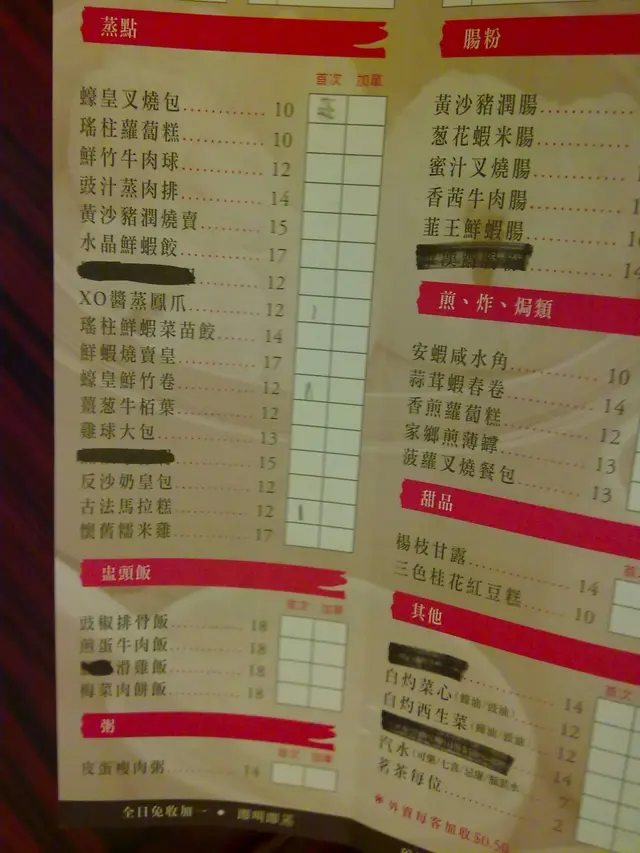 蒸點
首次 加單
蠔皇叉燒包 10
瑤柱蘿蔔糕 10
鮮竹牛肉球 12
豉汁蒸肉排 14
黃沙豬潤燒賣 15
水晶鮮蝦餃 17
12
XO醬蒸鳳爪 12
瑤柱鮮蝦菜苗餃 14
鮮蝦燒賣皇 17
蠔皇鮮竹卷 12
薑葱牛栢葉 12
雞球大包 13
15
反沙奶皇包 12
古法馬拉糕 12
懷舊糯米雞 17
盅頭飯
首次 加單
豉椒排骨飯 18
煎蛋牛肉飯 18
滑雞飯 18
梅菜肉餅飯 18
粥
首次 加單
皮蛋瘦肉粥 14
全日免收加一
腸粉
黃沙豬潤腸
葱花蝦米腸
蜜汁叉燒腸
香茜牛肉腸
韮王鮮蝦腸
14
煎、炸、焗類
安蝦咸水角 10
蒜茸蝦春卷 14
香煎蘿蔔糕 12
家鄉煎薄罉 13
菠蘿叉燒餐包 13
甜品
楊枝甘露 14
三色桂花紅豆糕 10
其他
14
白灼菜心(蠔油/豉油) 12
白灼西生菜(蠔油/豉油) 12
14
汽水 7
茗茶每位 2
*外賣每客加收$0.50